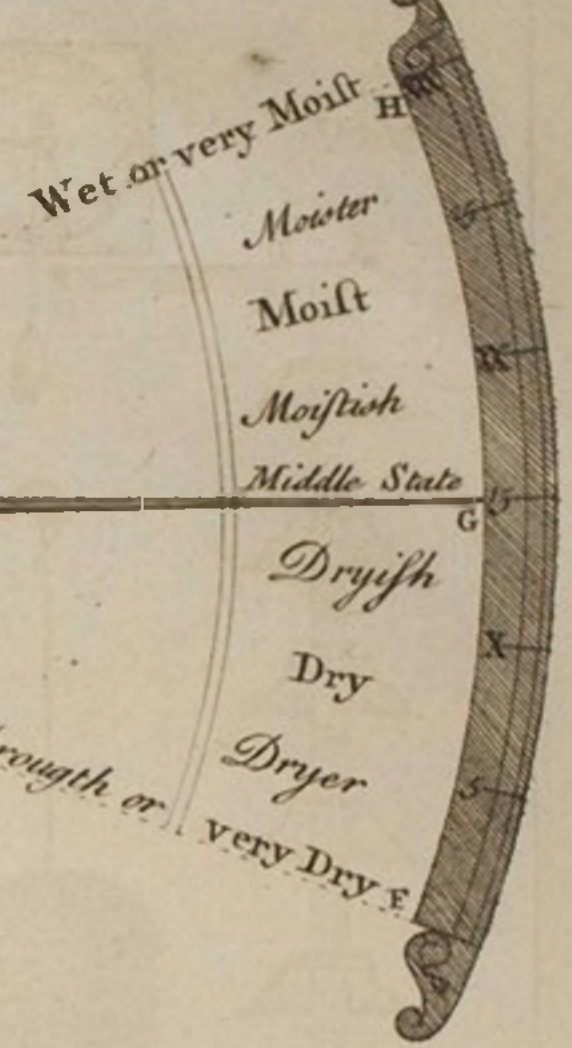 Wet or very Moiſt H
Moister
Moiſt
XX
Moiſtish
Middle State
G 15
Dryiſh
X
Dry
Dryer
5
rougth or very Dry E